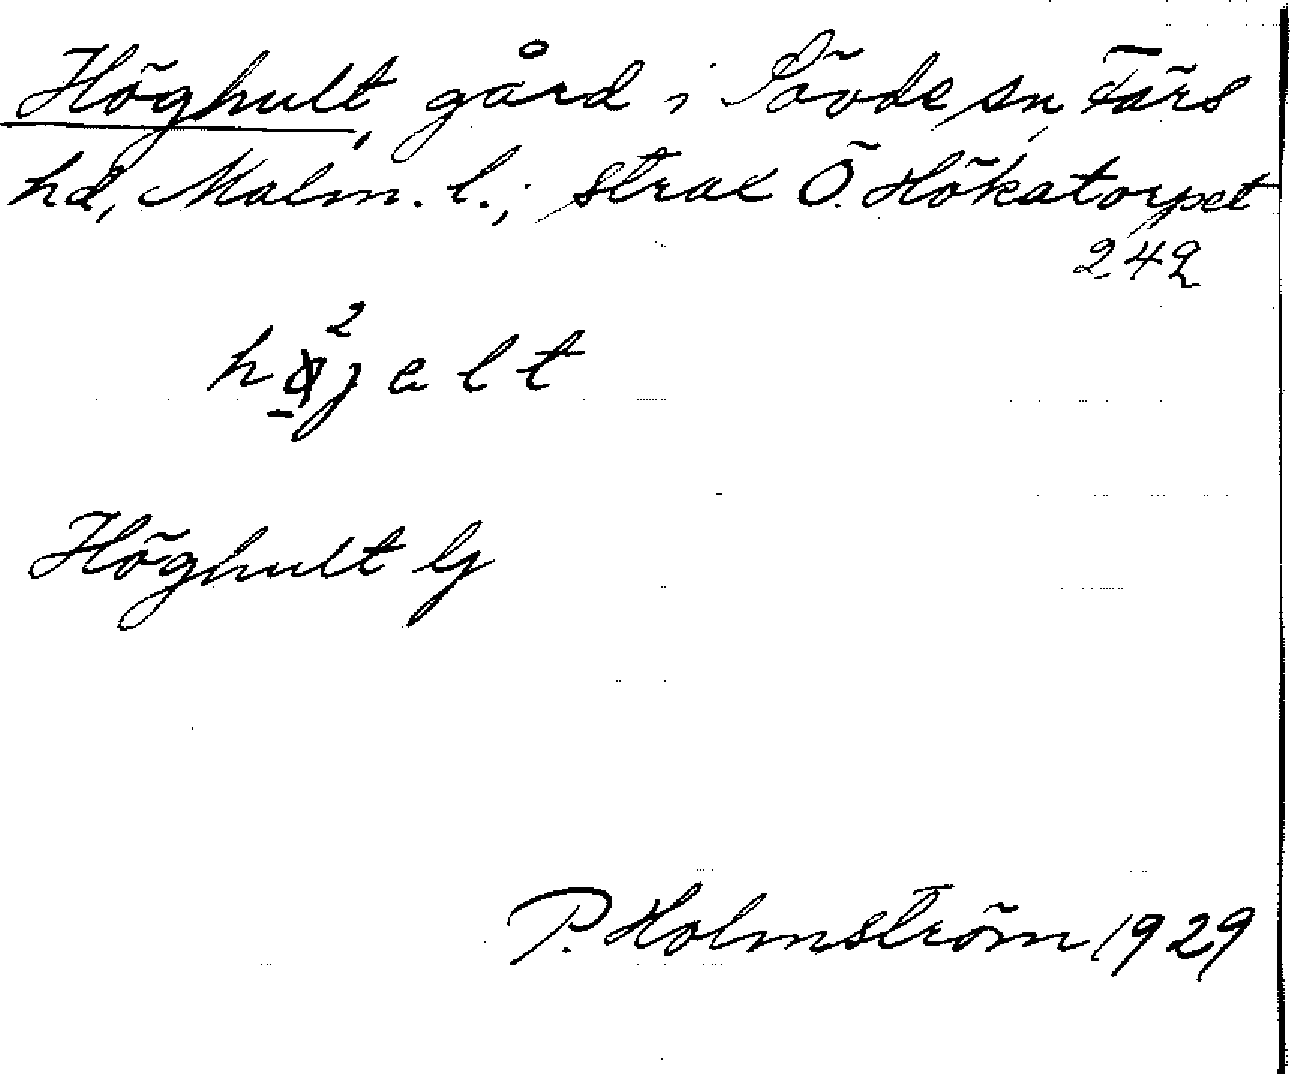 Höghult, gård i Sövde sn, Färs
hd, Malm. l.; strax Ö. Hökatorpet
242
Höghult G
P. Holmström 1929